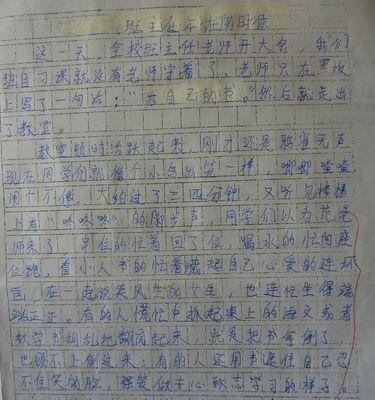 班主任不在的时候
这一天，全校班主任老师开大会，我们
班自习课就没有老师守着了，老师只在黑板
上写了一句话：“看自己的书。”然后就走出
了教室。
教室顿时活跃起来，刚才还是鸦雀无声，
现在同学们就像个小鸟出笼一样，唧唧喳喳，
闹个不停，大约过了三四分钟，又听见楼梯
上有“咚咚咚”的脚步声，同学们以为范老
师来了，串位的忙着回了位，喝水的忙向座
位跑，看小人书的忙着藏起自己心爱的连环
画，在一起谈笑风生的女生，也连忙坐得端
端正正。有的人慌忙中抓起桌上的语文或者
数学书胡乱地翻阅起来，就是把书拿倒了，
也顾不上倒过来，有的人还用书遮住自己忍
不住笑的脸，强装做专心致志学习的样子。